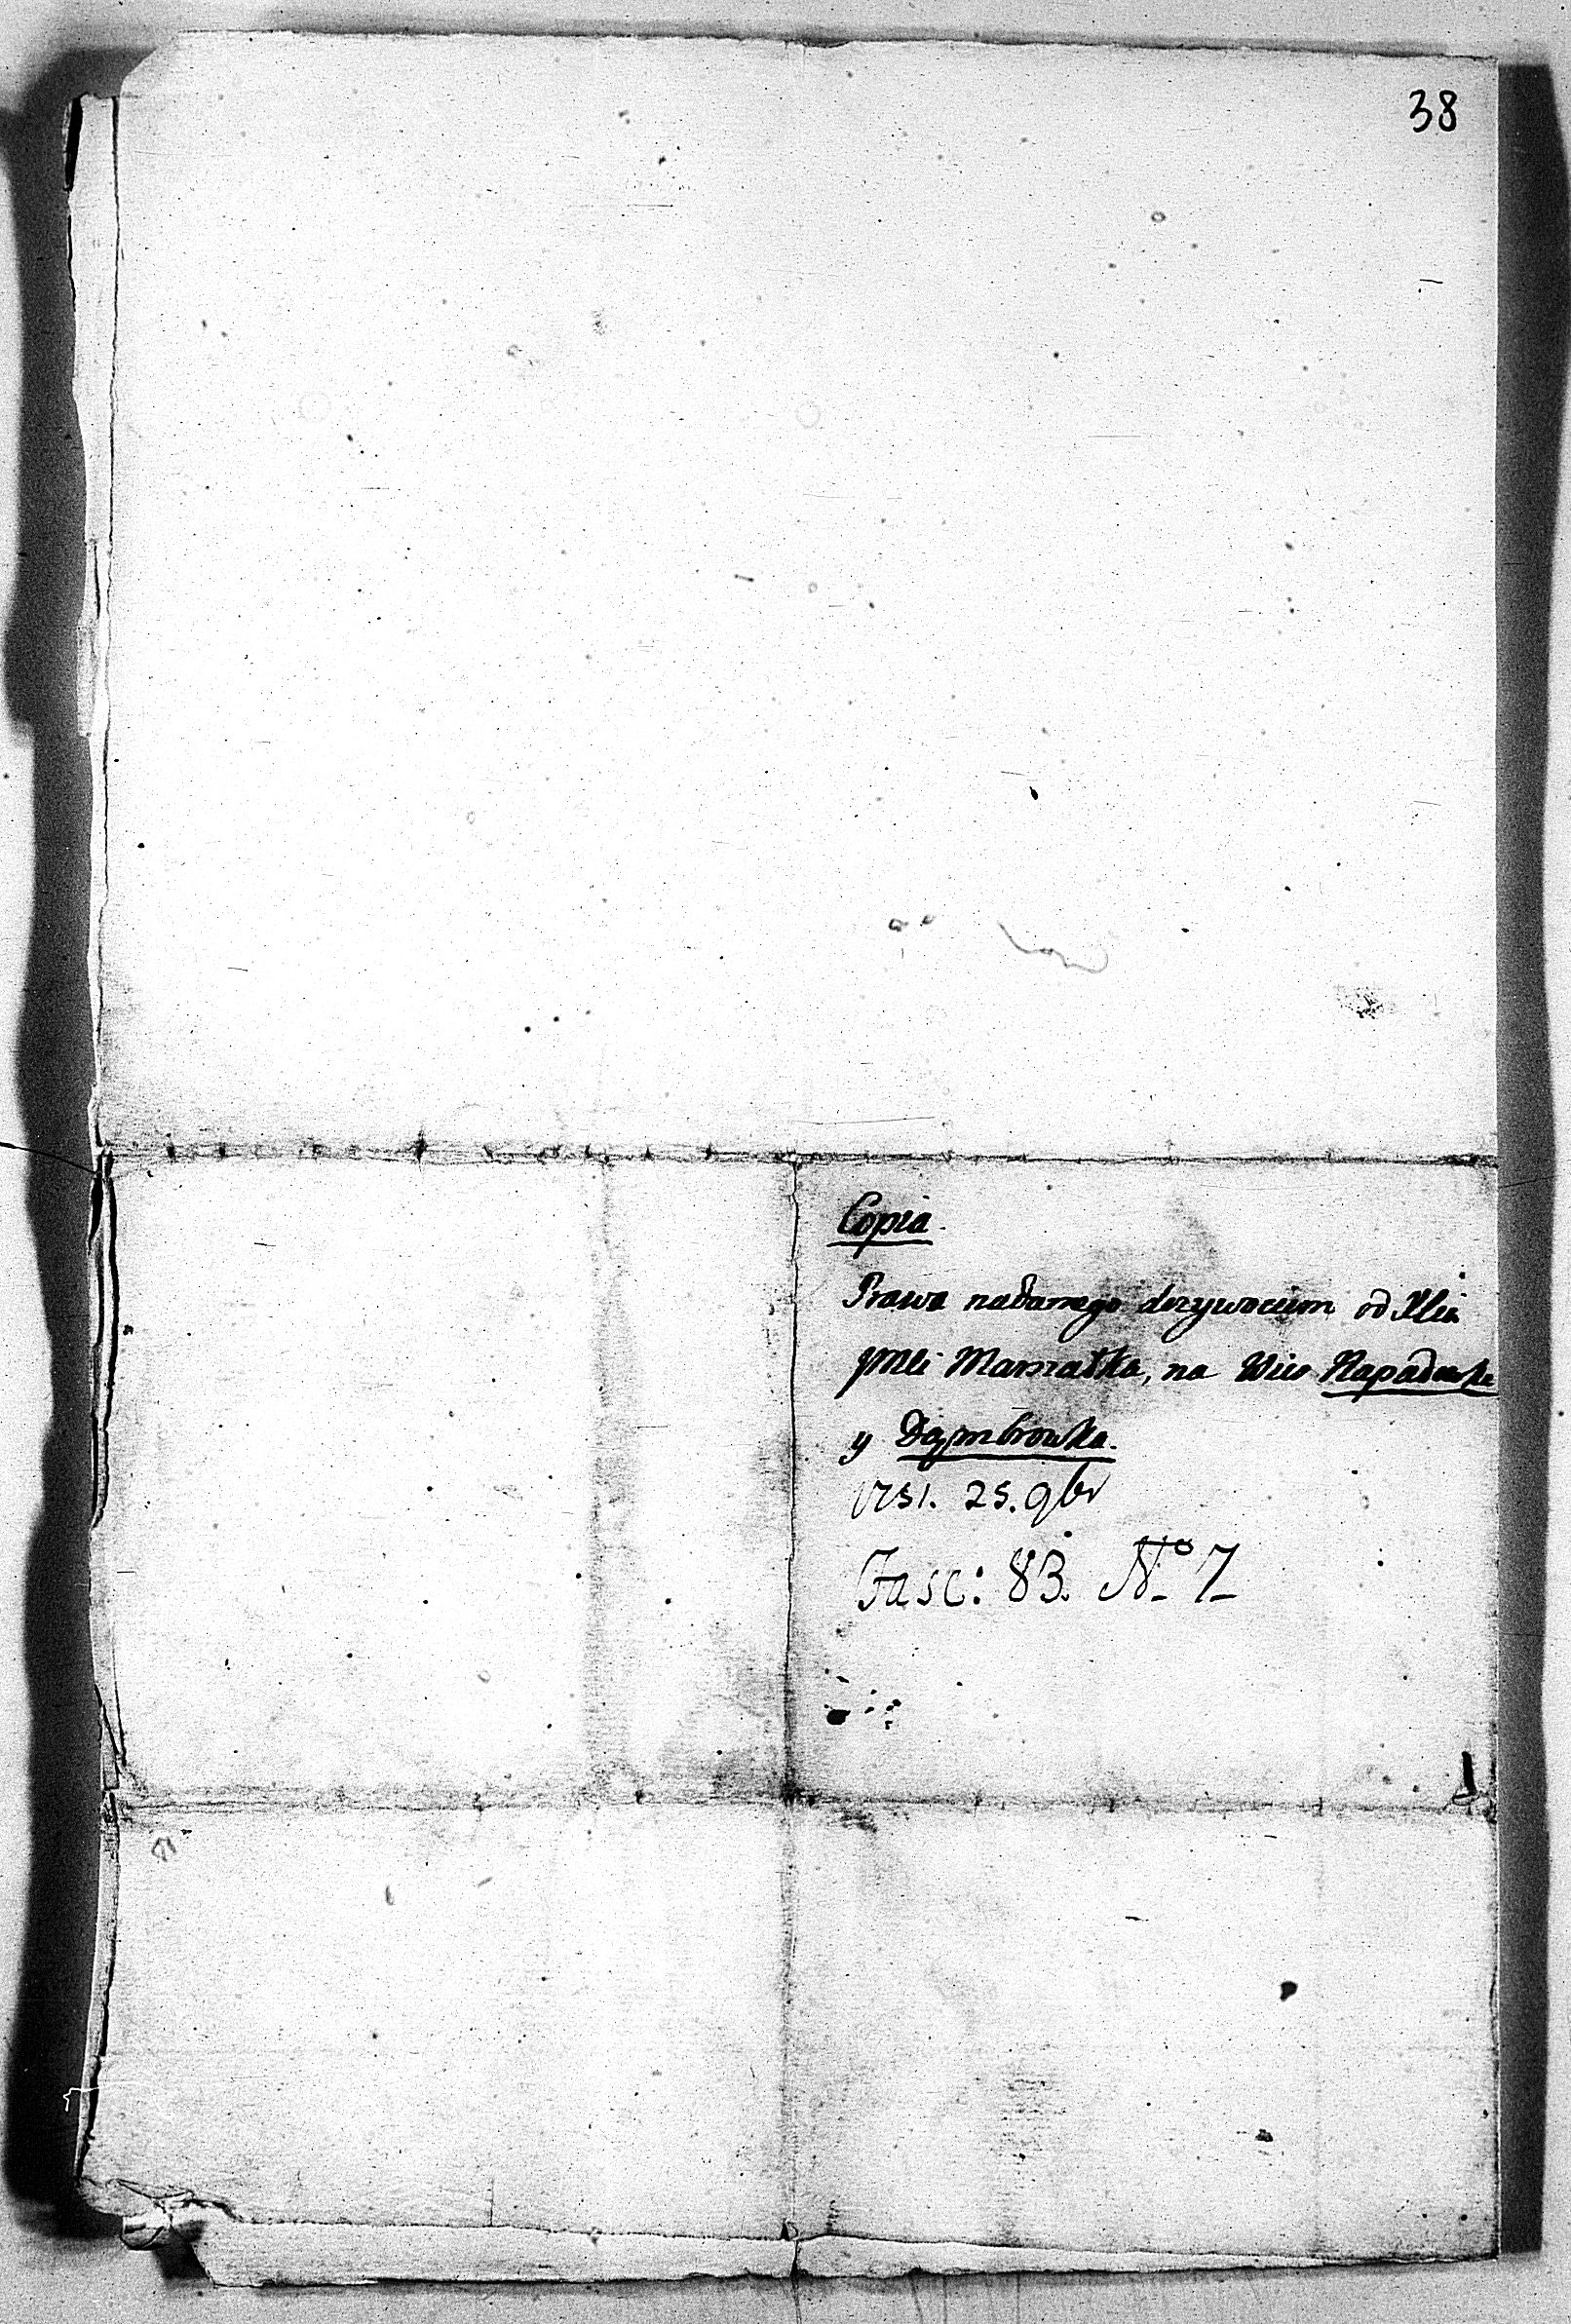 38
Copia
Prawa nadanego dozywociem od Xcia
JMci Marszałka, na Wieś Napadówkę
y Dąmbrowka.
1751. 25. 9br
Fasc: 83. No 7